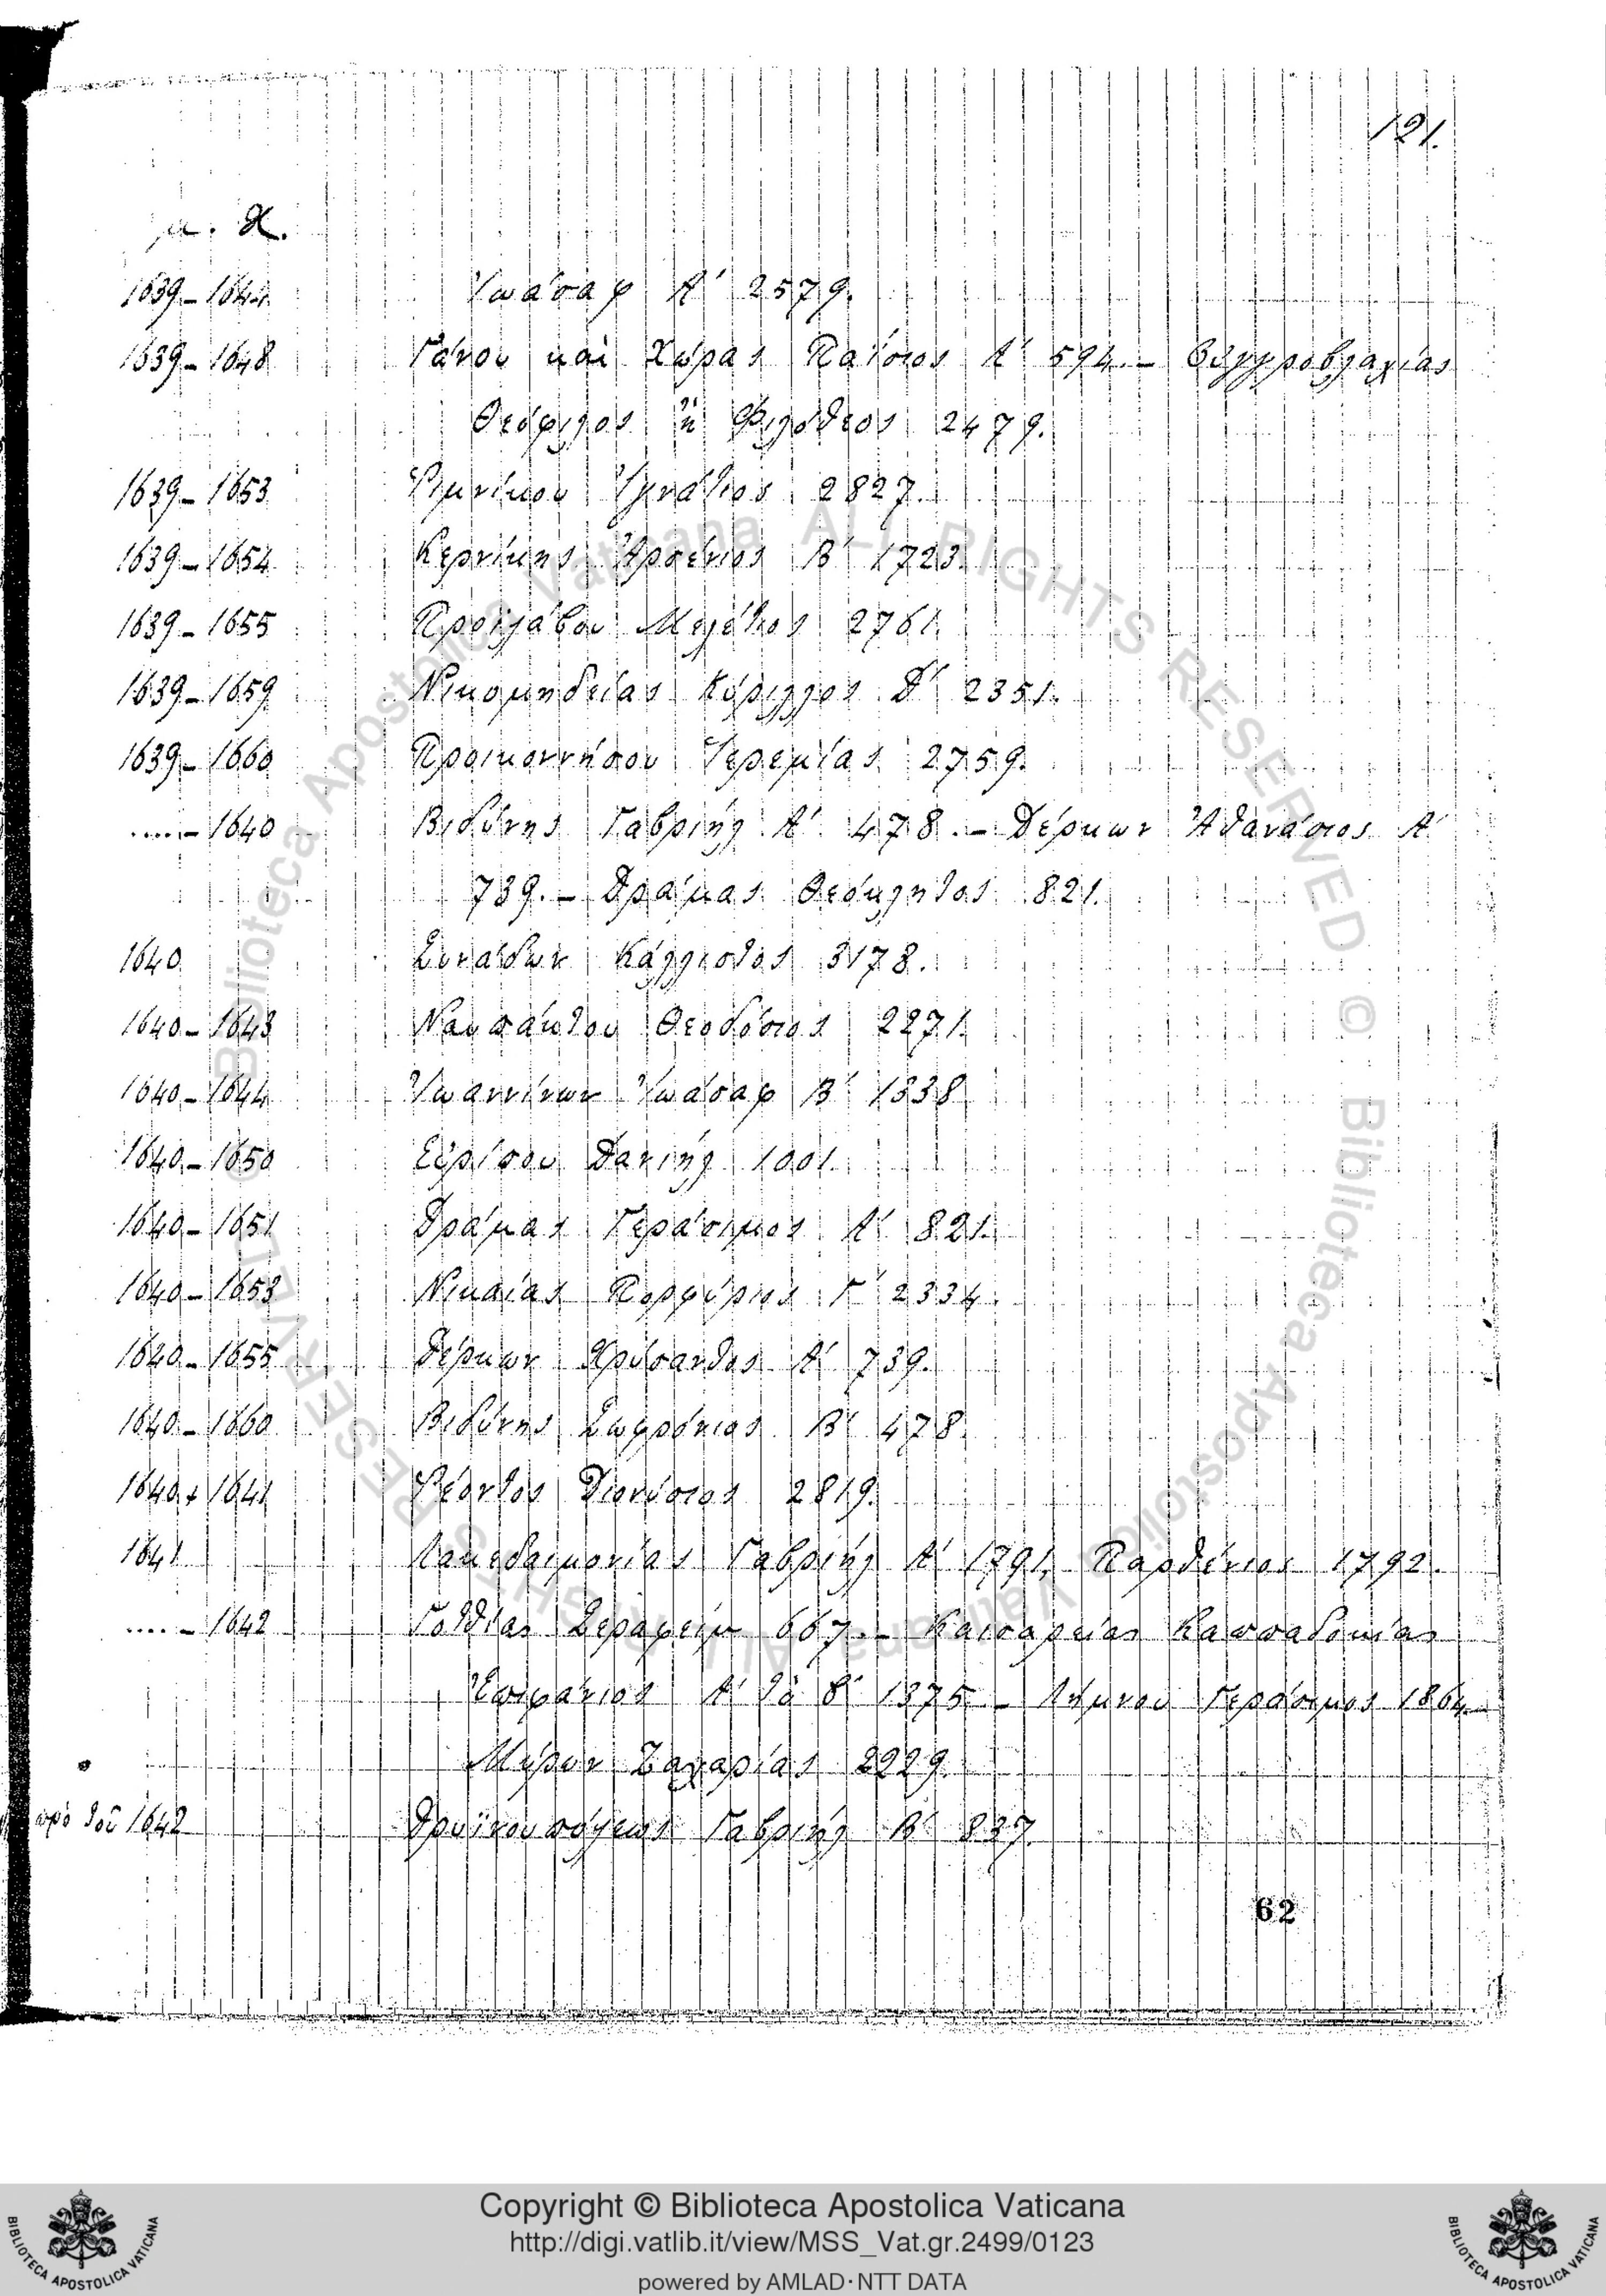 121.
μ. Χ.
1639-1644 Ἰωάσαφ Α΄ 2579.
1639-1648 Γάνου καὶ Χώρας Παΐσιος Α΄ 594.- Οὑγγροβλαχίας
Θεόφιλος ἢ Φιλόθεος 2479.
1639-1653 Ῥιμνίκου Ἰγνάτιος 2827.
1639-1654 Κερνίκης Ἀρσένιος Β΄ 1723.
1639-1655 Προϊλάβου Μελέτιος 2761.
1639-1659 Νικομηδείας Κύριλλος Δ΄ 2351.
1639-1660 Προικοννήσου Ἱερεμίας 2759.
....-1640 Βιδύνης Γαβριὴλ Α΄ 478.- Δέρκων Ἀθανάσιος Α΄
739.- Δράμας Θεόκλητος 821.
1640 Συνάδων Κάλλιστος 3178.
1640-1643 Ναυπάκτου Θεοδόσιος 2271.
1640-1644 Ἰωαννίνων Ἰωάσαφ Β΄ 1338.
1640-1650 Εὑρίπου Δανιὴλ 1001.
1640-1651 Δράμας Γεράσιμος Α΄ 821.
1640-1653 Νικαίας Πορφύριος Γ΄ 2334.
1640-1655 Δέρκων Χρύσανθος Α΄ 739.
1640-1660 Βιδύνης Σωφρόνιος Β΄ 478.
1640+1641 Ῥέοντος Διονύσιος 2819.
1641 Λακεδαιμονίας Γαβριὴλ Α΄ 1791, Παρθένιος 1792.
....-1642 Γοτθίας Σεραφεὶμ 667.- Καισαρείας Καππαδοκίας
Ἐπιφάνιος Α΄ τὸ β΄ 1375.- Λήμνου Γεράσιμος 1864.
Μύρων Ζαχαρίας 2229.
πρὸ τοῦ 1642 Δρυϊνουπόλεως Γαβριὴλ Β΄ 837.
62
© Biblioteca Apostolica Vaticana ALL RIGHTS RESERVED © Biblioteca Apostolica Vaticana ALL RIGHTS RESERVED
Copyright © Biblioteca Apostolica Vaticana
http://digi.vatlib.it/view/MSS_Vat.gr.2499/0123
powered by AMLAD·NTT DATA
BIBLIOTECA APOSTOLICA VATICANA
BIBLIOTECA APOSTOLICA VATICANA